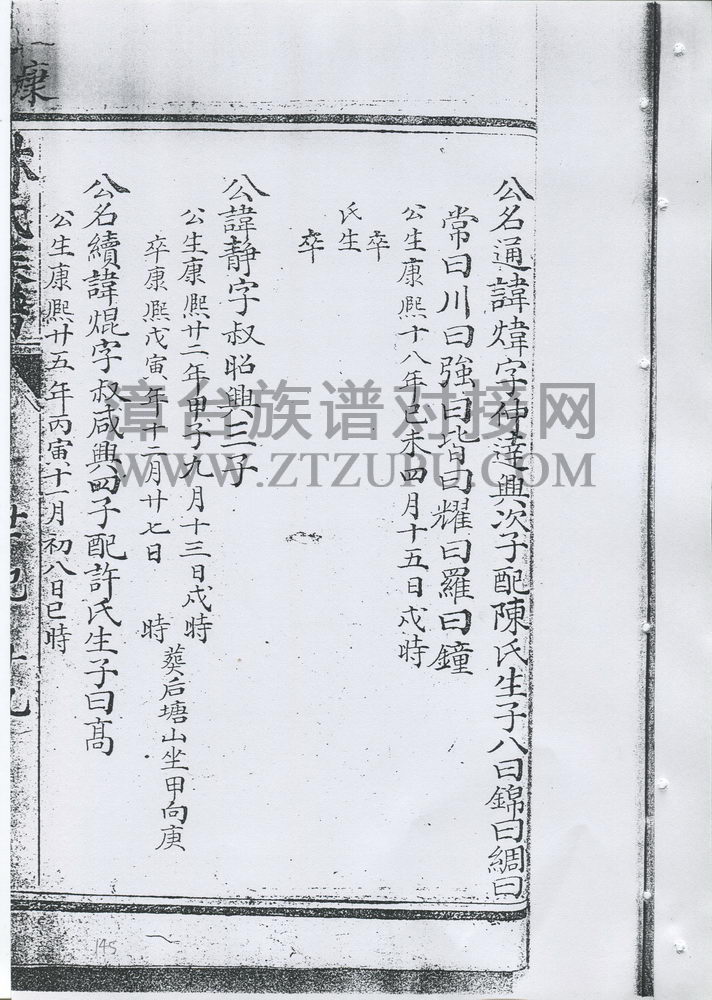 公名通諱煒字仲達興次子配陳氏生子八曰錦曰綢曰
常曰川曰強曰皆曰耀曰羅曰鐘
公生康熙十八年己未四月十五日戌時
卒
氏生
卒
公諱靜字叔昭興三子
公生康熙廿二年甲子九月十三日戌時
卒康熙戊寅年十二月廿七日 時
葬后塘山坐甲向庚
公名續諱焜字叔咸興四子配許氏生子曰高
公生康熙廿五年丙寅十一月初八日巳時
林氏族譜
康
145
章台族谱对接网
WWW.ZTZUPU.COM